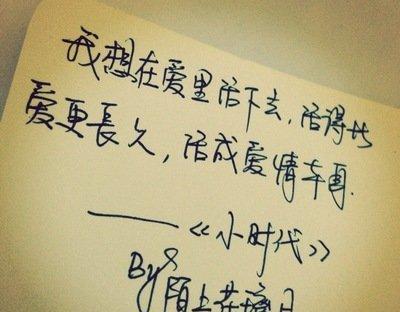 我想在爱里活下去，活得比
爱更長久，活成爱情本身.
——《小时代》
By
陌上